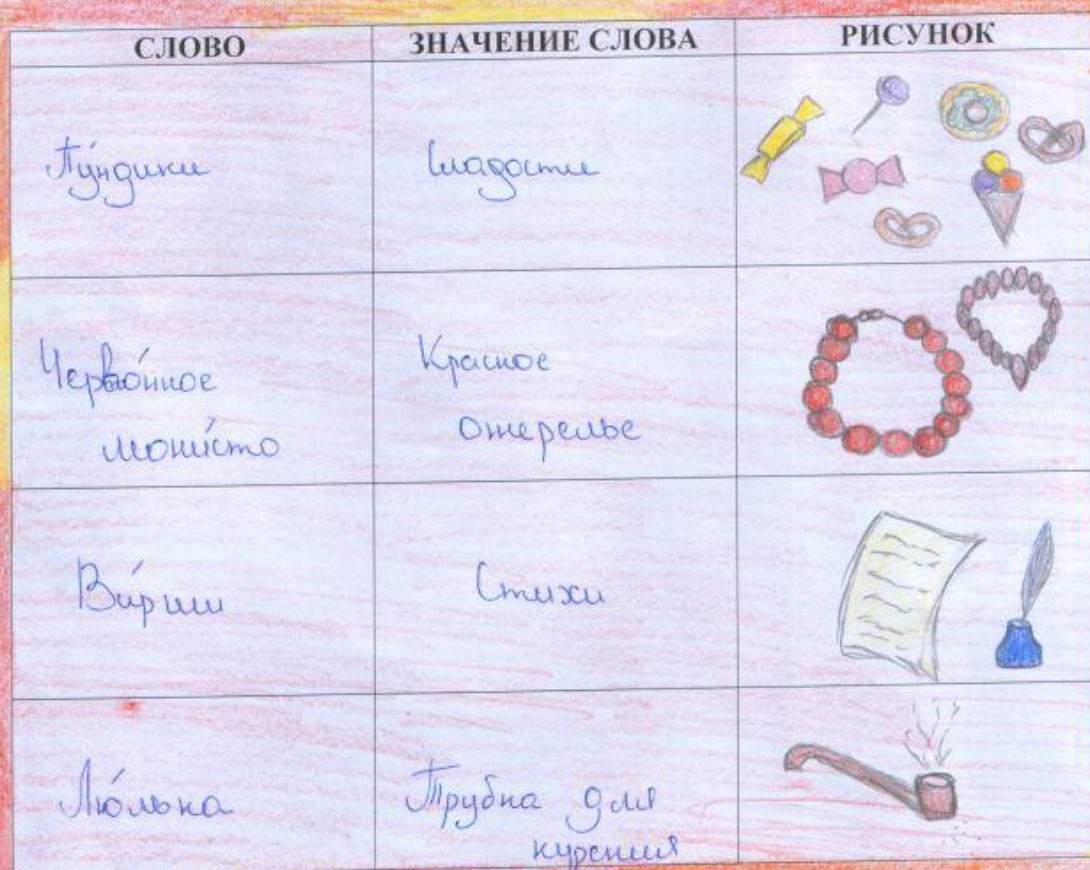 СЛОВО ЗНАЧЕНИЕ СЛОВА РИСУНОК
Пу́ндики Сладости
Черво́нное Красное
мони́сто ожерелье
Ви́рши Стихи
Лю́лька Трубка для
курения